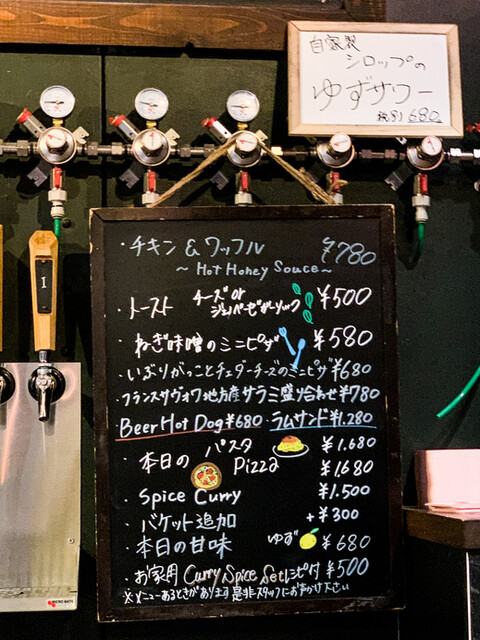 自家製
シロップの
ゆずサワー
税別 680
・チキン & ワッフル ¥780
～ Hot Honey Souce ～
・トースト チーズ or ジェノベーゼガーリック ¥500
・ねぎ味噌のミニピザ ¥580
・いぶりがっことチェダーチーズのミニピザ ¥680
・フランスサヴォワ地方産サラミ盛り合わせ ¥780
Beer Hot Dog ¥680 ・ラムサンド ¥1.280
・本日の パスタ ¥1.680
Pizza ¥1680
・Spice Curry ¥1.500
・バケット追加 + ¥300
・本日の甘味 ゆず ¥680
・お家用 Curry Spice Set レシピ付 ¥500
※メニューあるときがあります 是非スタッフにお声かけ下さい
I
MICRO MATIC